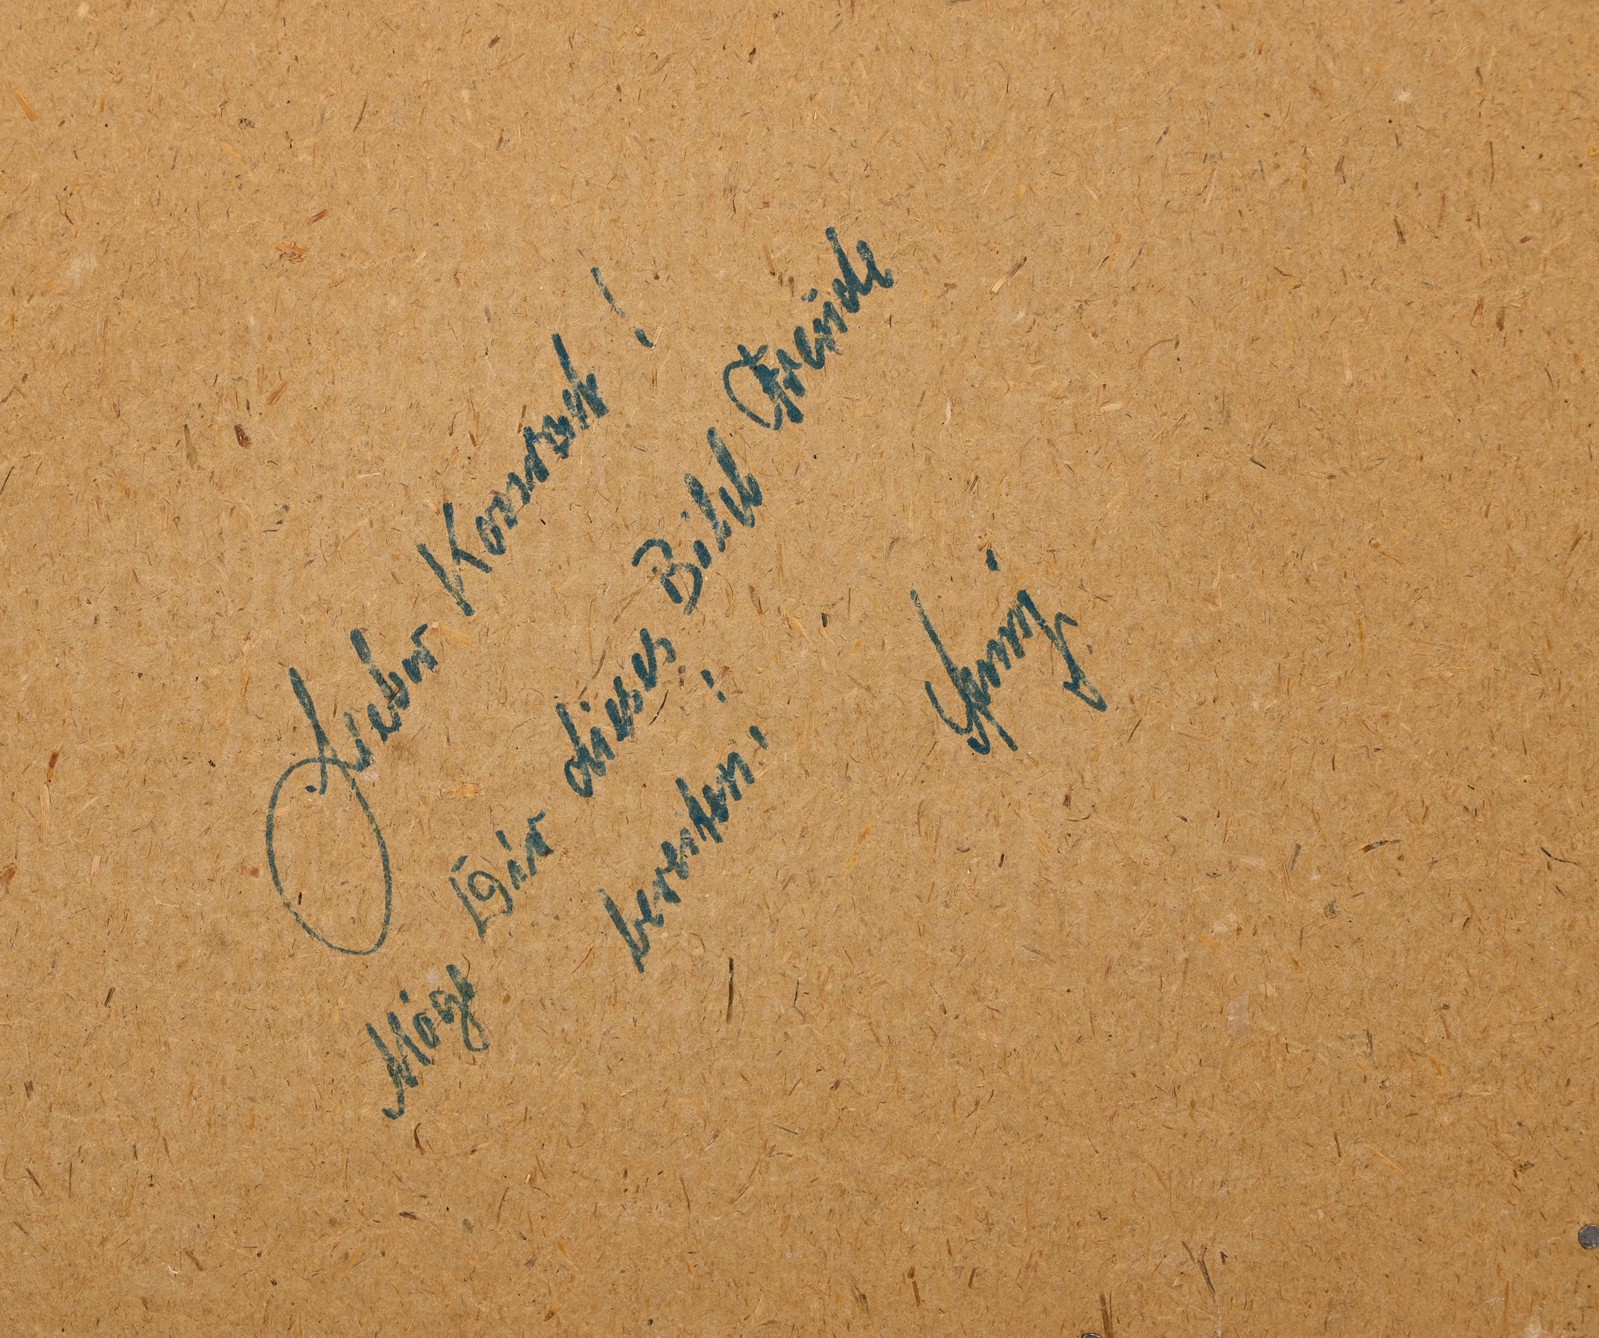 Lieber Konrad!
Möge Dir dieses Bild Freude
bereiten!